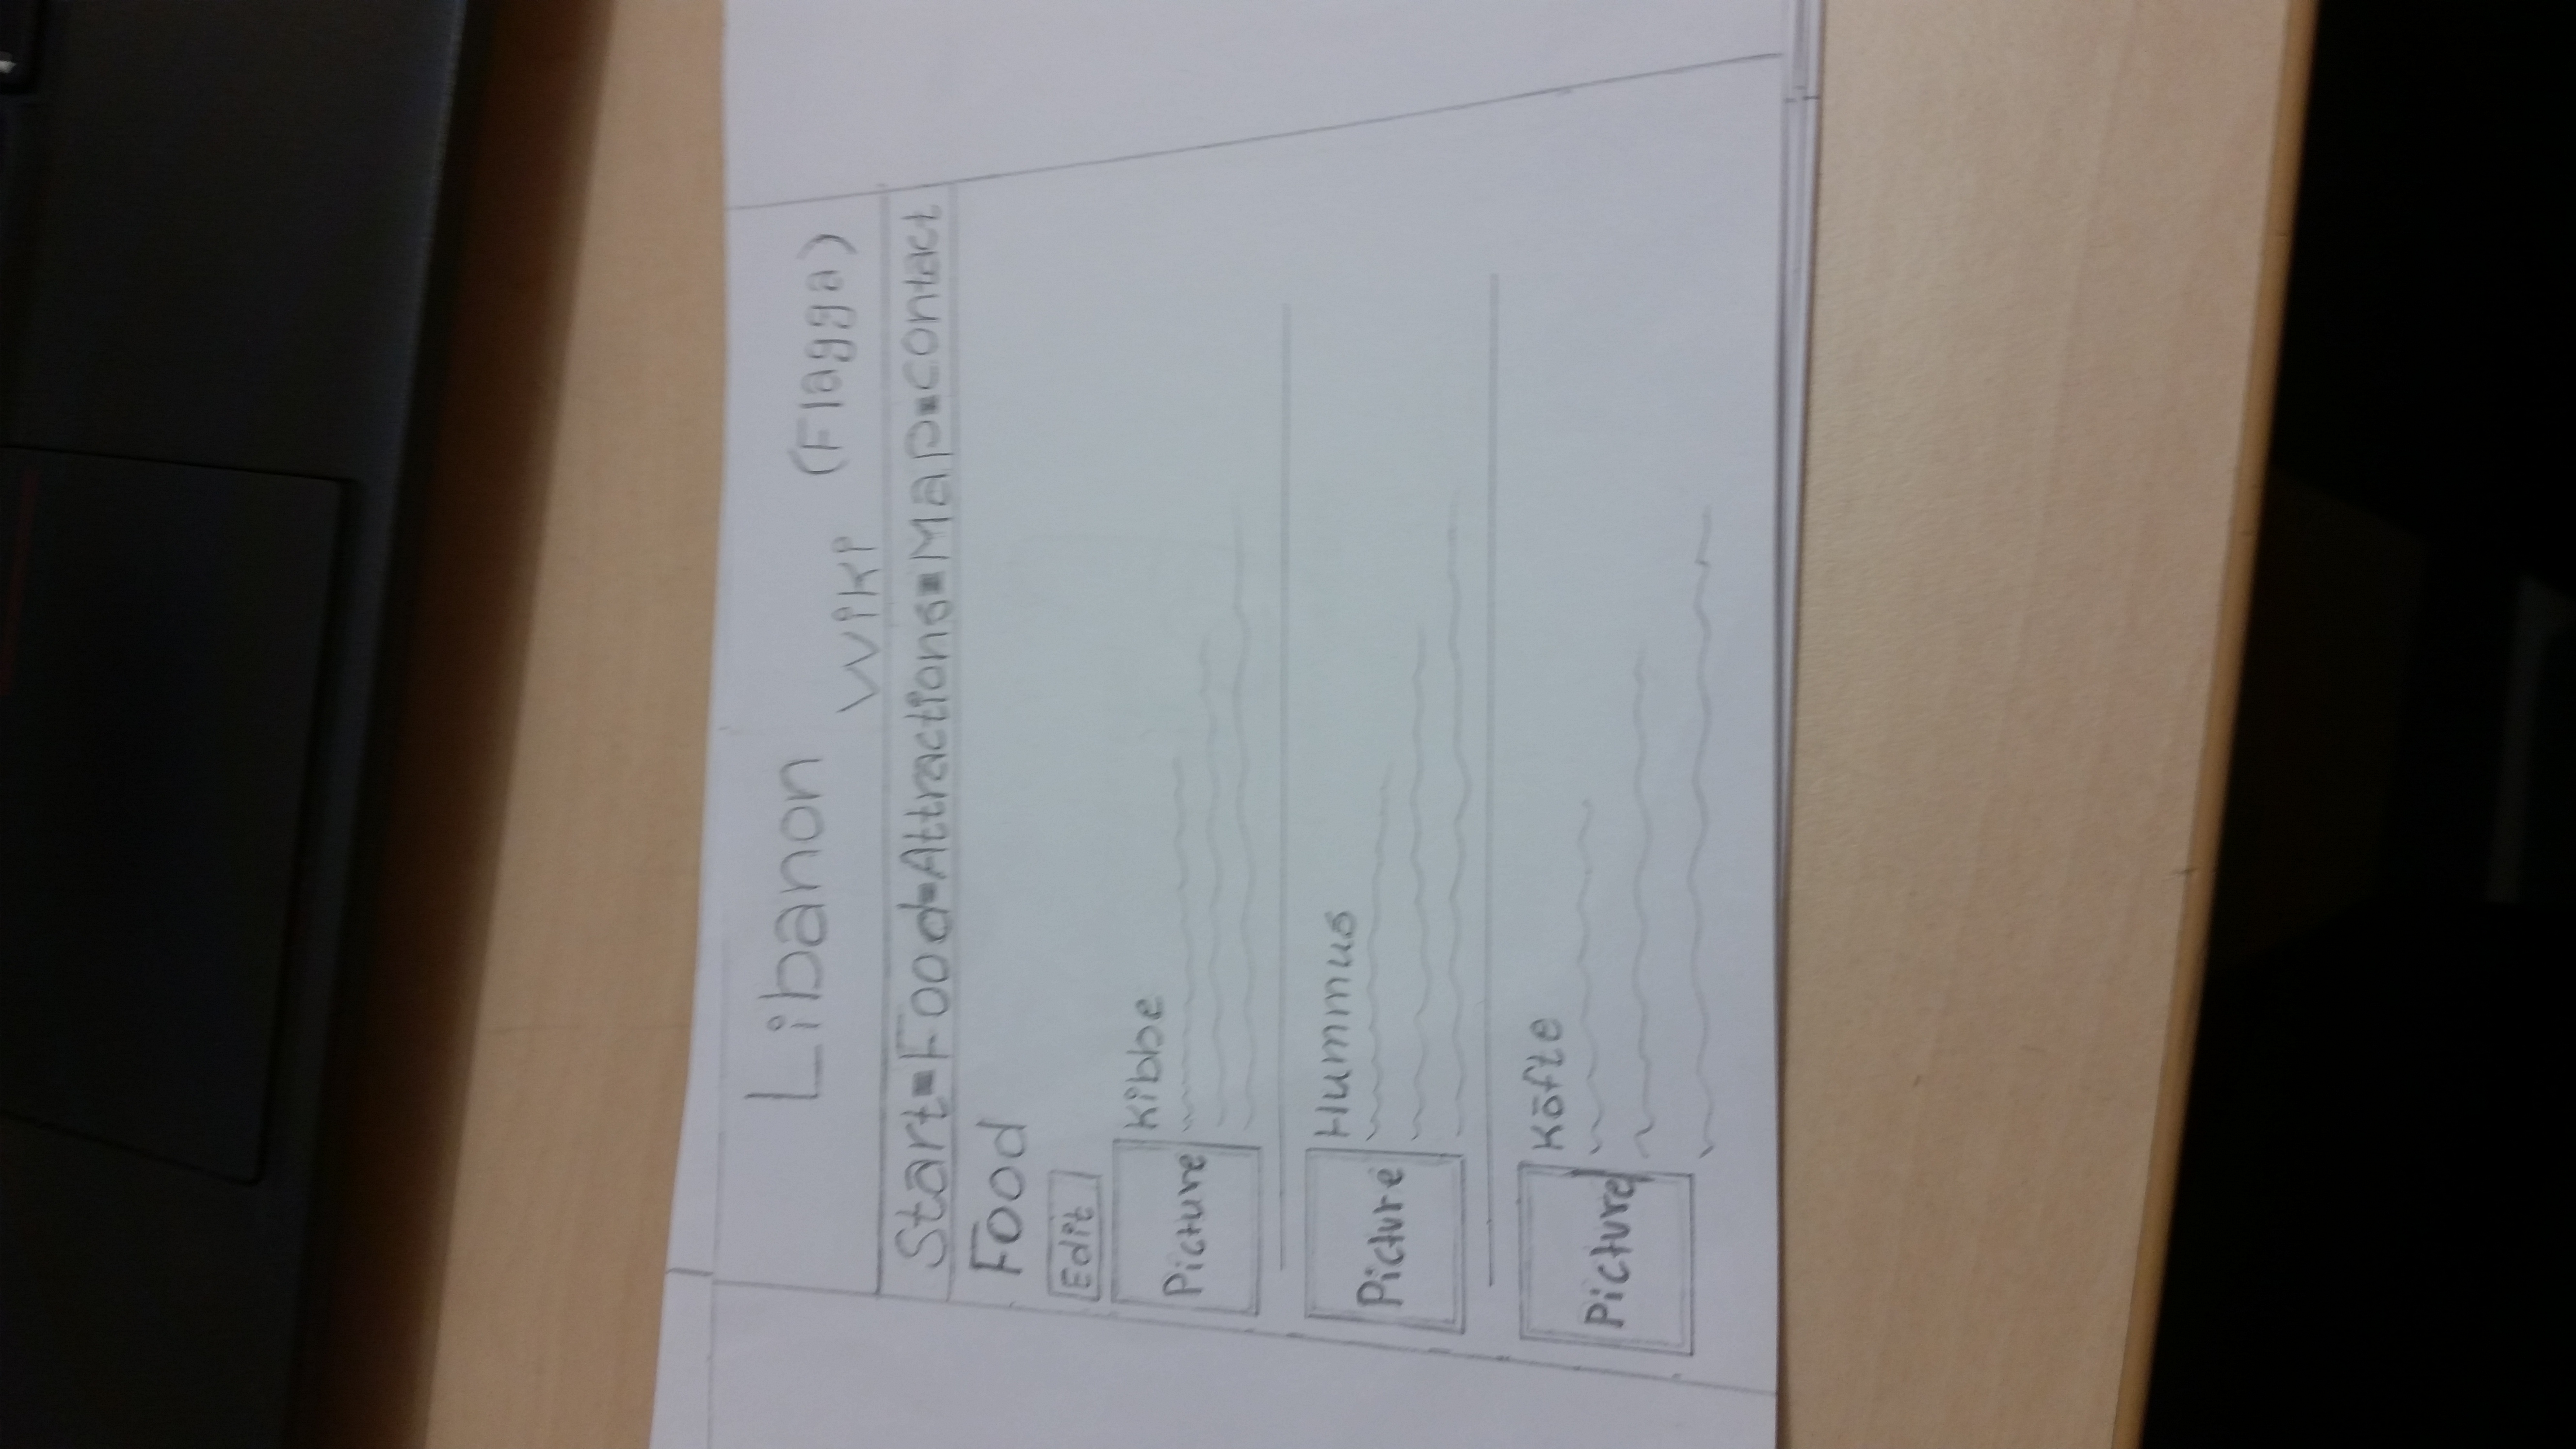 Libanon
Wiki
(Flagga)
Start-Food-Attractions-Map-Contact
Food
Edit
Picture
Kibbe
Picture
Hummus
Picture
Köfte